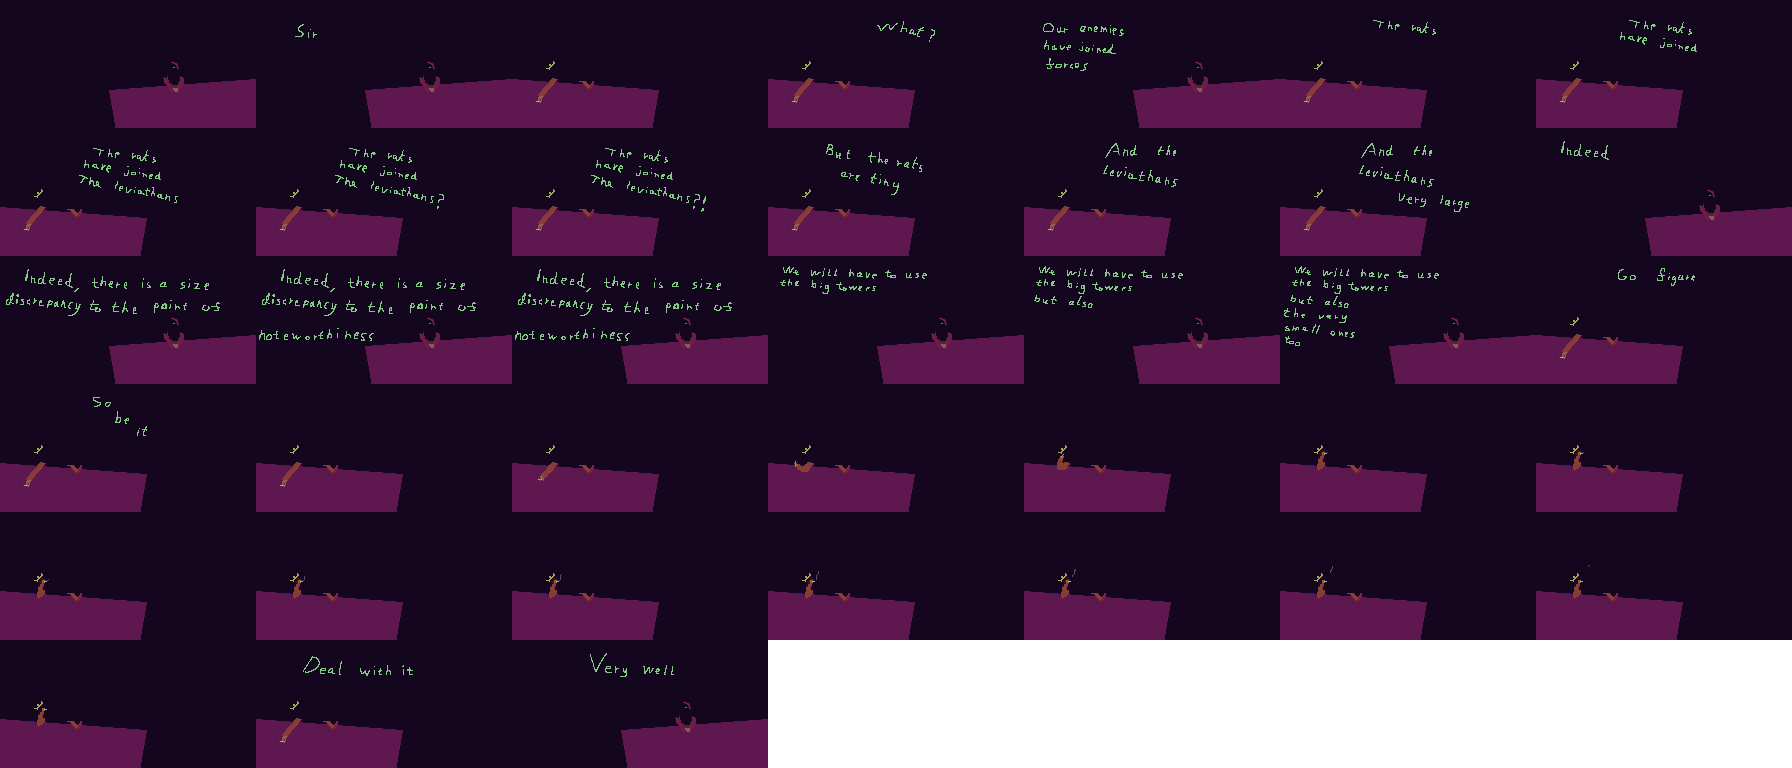 Sir
What?
Our enemies
have joined
forces
The rats
The rats
have joined
The rats
have joined
The leviathans
The rats
have joined
The leviathans?
The rats
have joined
The leviathans?!
But the rats
are tiny
And the
leviathans
And the
leviathans
Very large
Indeed
Indeed, there is a size
discrepancy to the point of
Indeed, there is a size
discrepancy to the point of
noteworthiness
Indeed, there is a size
discrepancy to the point of
noteworthiness
We will have to use
the big towers
We will have to use
the big towers
but also
We will have to use
the big towers
but also
the very
small ones
too
Go figure
So
be
it
Deal with it
Very well